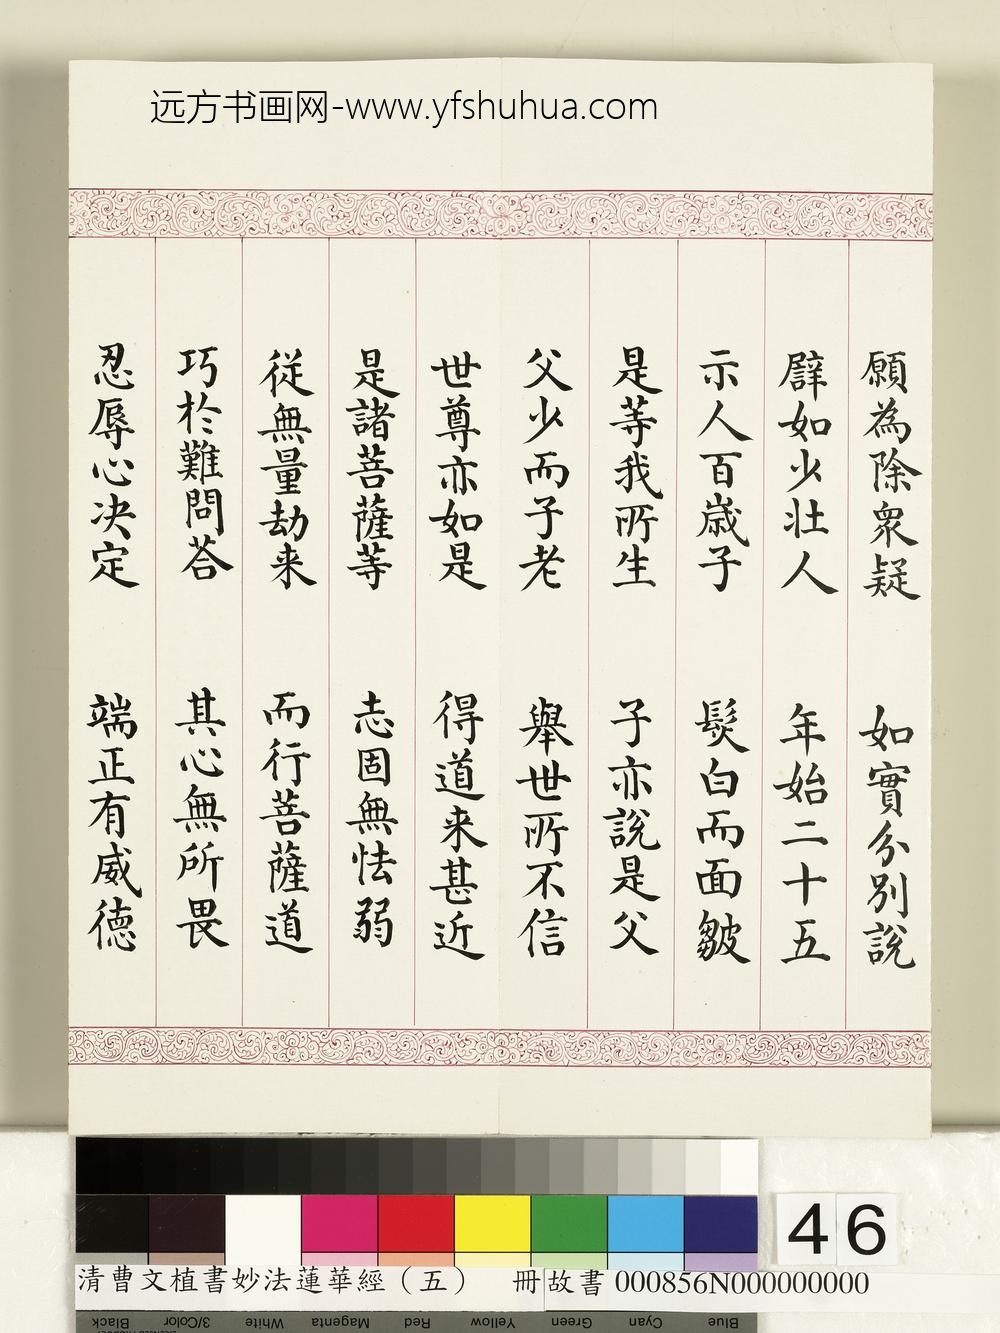 远方书画网-www.yfshuhua.com
願為除衆疑 如實分別說
辟如少壮人 年始二十五
示人百歳子 髮白而面皺
是等我所生 子亦說是父
父少而子老 舉世所不信
世尊亦如是 得道来甚近
是諸菩薩等 志固無怯弱
従無量劫来 而行菩薩道
巧於難問荅 其心無所畏
忍辱心决定 端正有威德
46
清曹文植書妙法蓮華經（五） 冊 故書 000856N000000000
Black 3/Color White Magenta Red Yellow Green Cyan Blue